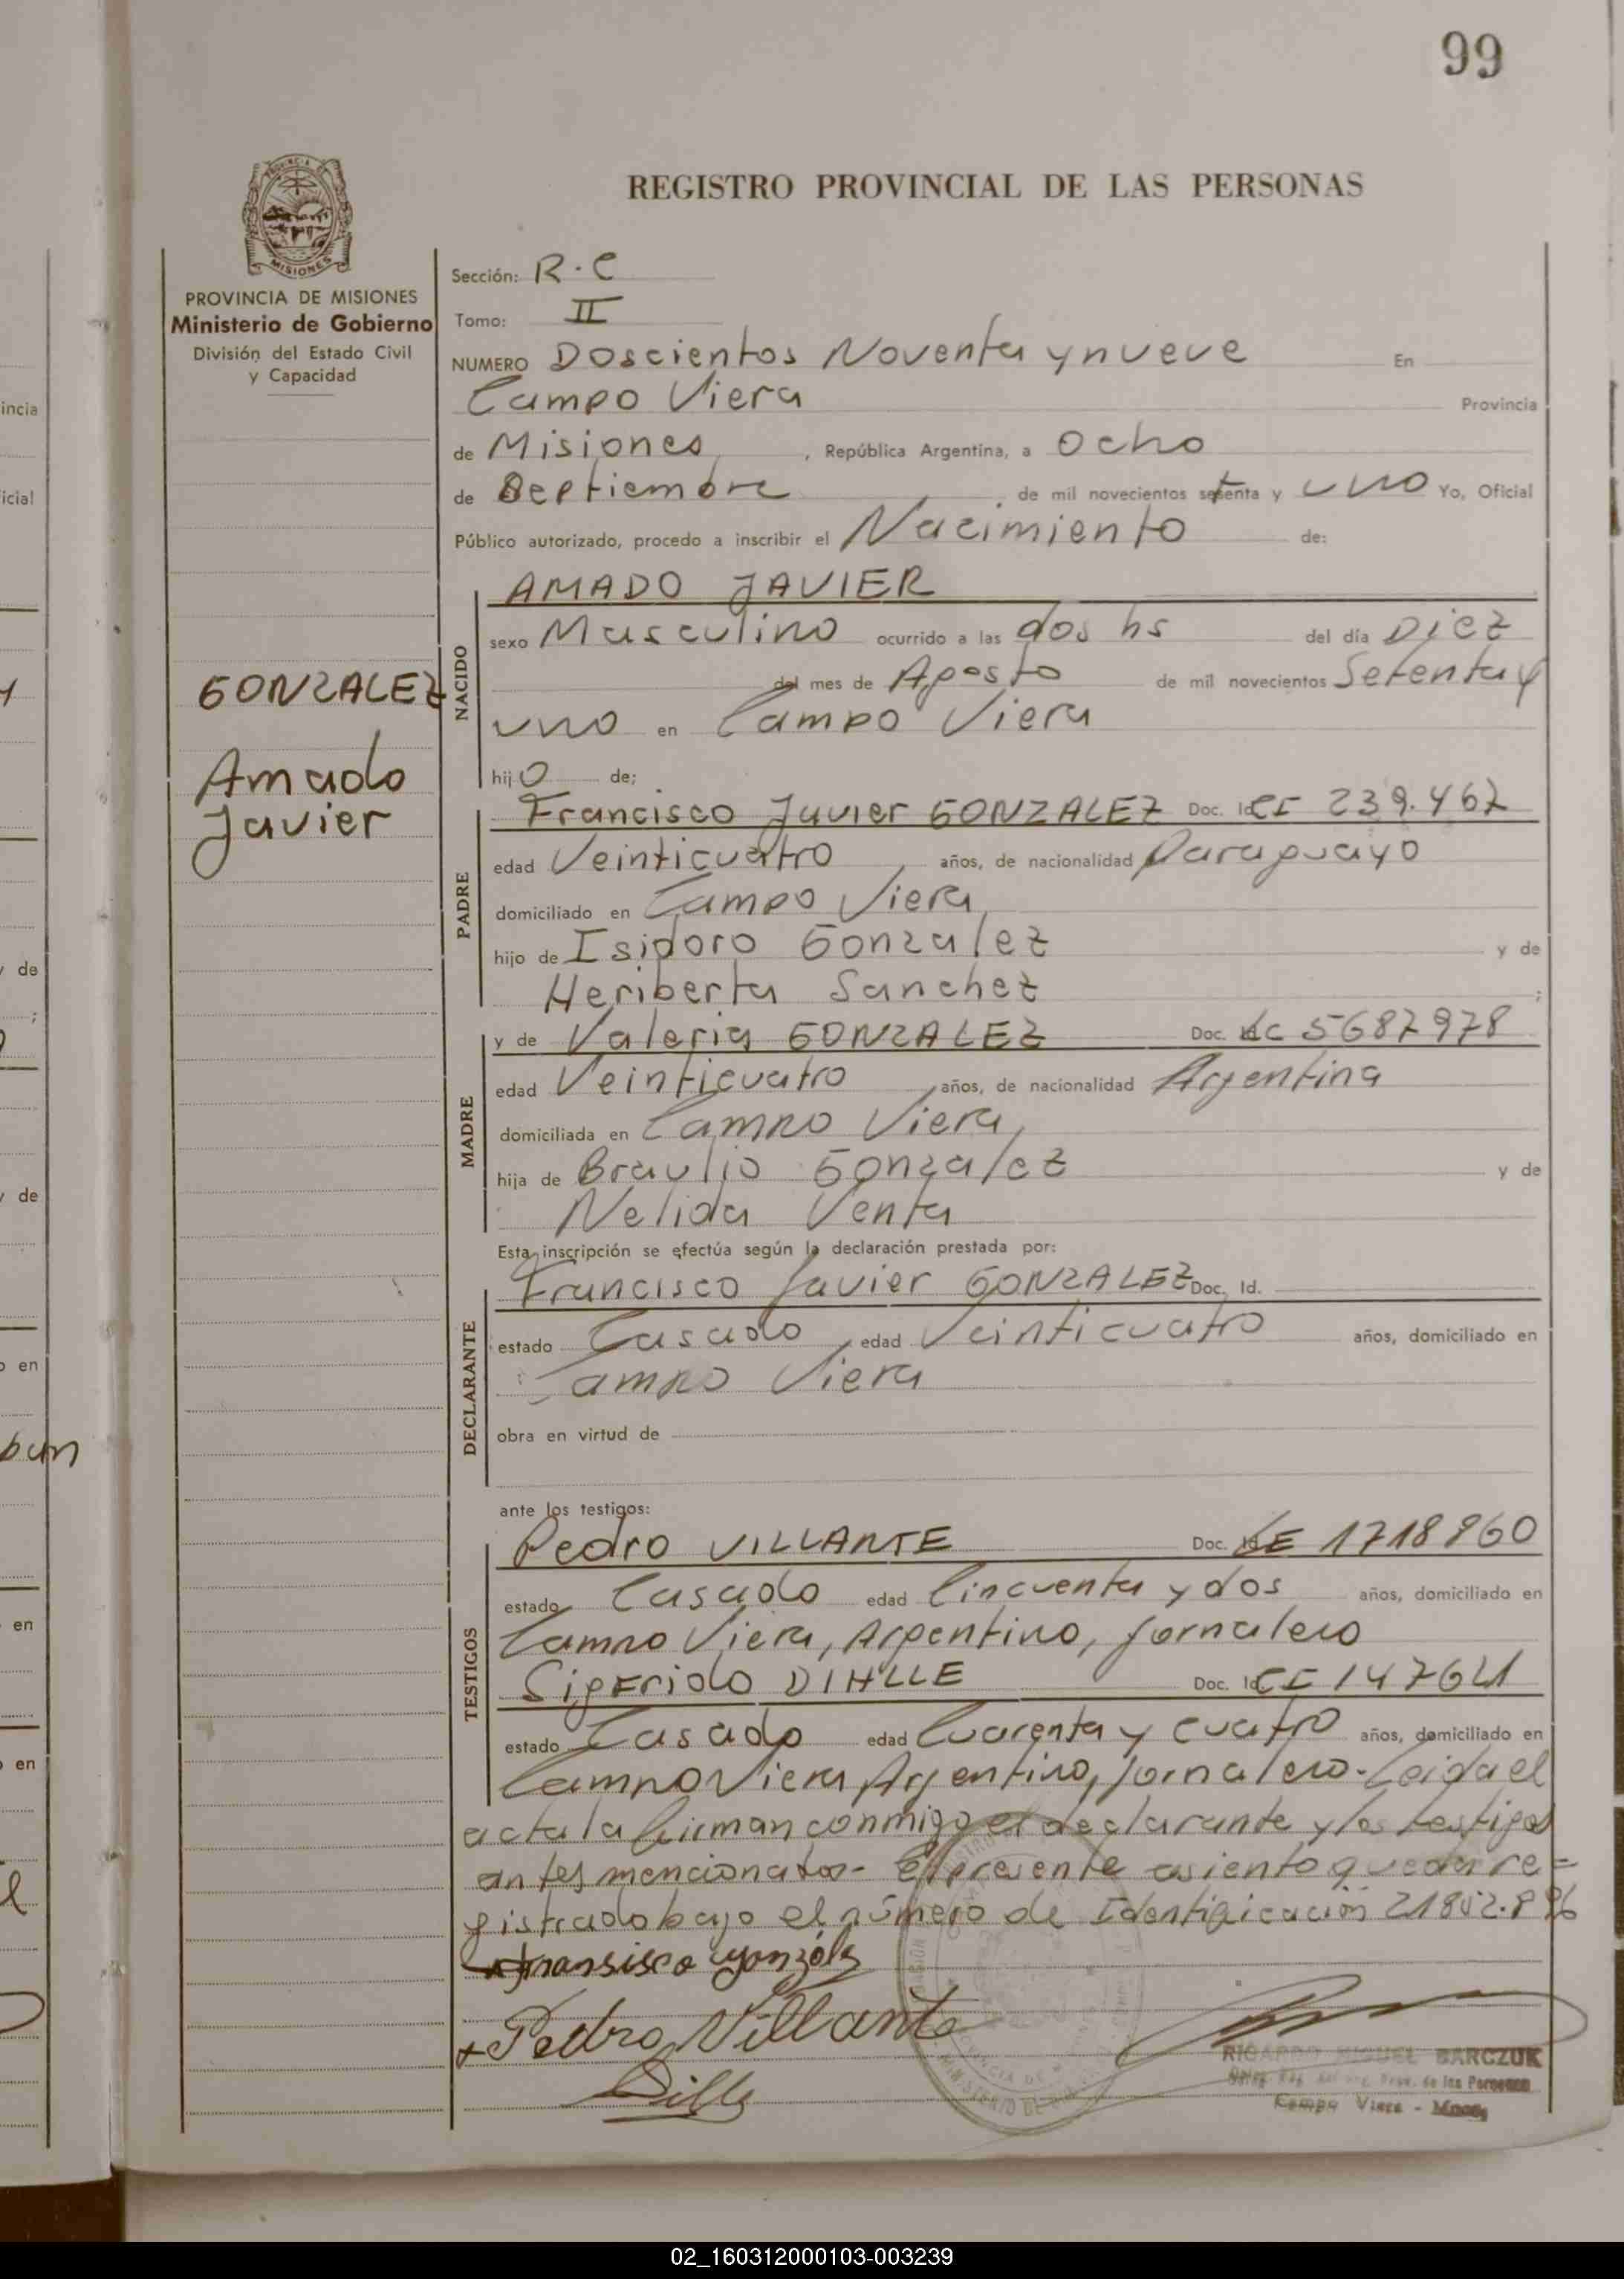 99
REGISTRO PROVINCIAL DE LAS PERSONAS
MISIONES
PROVINCIA DE MISIONES
Ministerio de Gobierno
División del Estado Civil
y Capacidad
GONZALEZ
Amado
Javier
Sección: R.C
Tomo: II
NUMERO Doscientos Noventa y nueve En
Campo Viera Provincia
de Misiones, República Argentina, a Ocho
de Septiembre, de mil novecientos setenta y uno Yo, Oficial
Público autorizado, procedo a inscribir el Nacimiento de:
NACIDO
AMADO JAVIER
sexo Masculino ocurrido a las dos hs del día Diez
del mes de Agosto de mil novecientos Setenta y
uno en Campo Viera
hijo de;
PADRE
Francisco Javier GONZALEZ Doc. Id. CI 239.467
edad Veinticuatro, años, de nacionalidad Paraguayo
domiciliado en Campo Viera,
hijo de Isidoro Gonzalez y de
Heriberta Sanchez ;
MADRE
y de Valeria GONZALEZ Doc. LC 5687978
edad Veinticuatro, años, de nacionalidad Argentina
domiciliada en Campo Viera,
hija de Braulio Gonzalez y de
Nelida Venta
Esta inscripción se efectúa según la declaración prestada por:
DECLARANTE
Francisco Javier GONZALEZ Doc. Id.
estado Casado, edad Veinticuatro años, domiciliado en
Campo Viera
obra en virtud de
ante los testigos:
TESTIGOS
Pedro VILLANTE Doc. Id. LE 1718960
estado Casado edad Cincuenta y dos años, domiciliado en
Campo Viera, Argentino, jornalero
Sigfrido DIHLLE Doc. Id. CI 147621
estado Casado edad Cuarenta y cuatro años, domiciliado en
Campo Viera, Argentino, jornalero. Leida el
acta la firman conmigo el declarante y los testigos
antes mencionados - El presente asiento queda re=
gistrado bajo el número de Identificación 21802.896
Fransisco Gonzáles
Pedro Villante
Dille
RICARDO MIGUEL BARCZUK
de las Personas
Campo Viera - Mnes
incia
icial
y de
;
y de
o en
en
o en
02_160312000103-003239